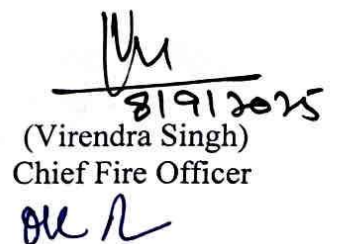 8|9|2025
(Virendra Singh)
Chief Fire Officer